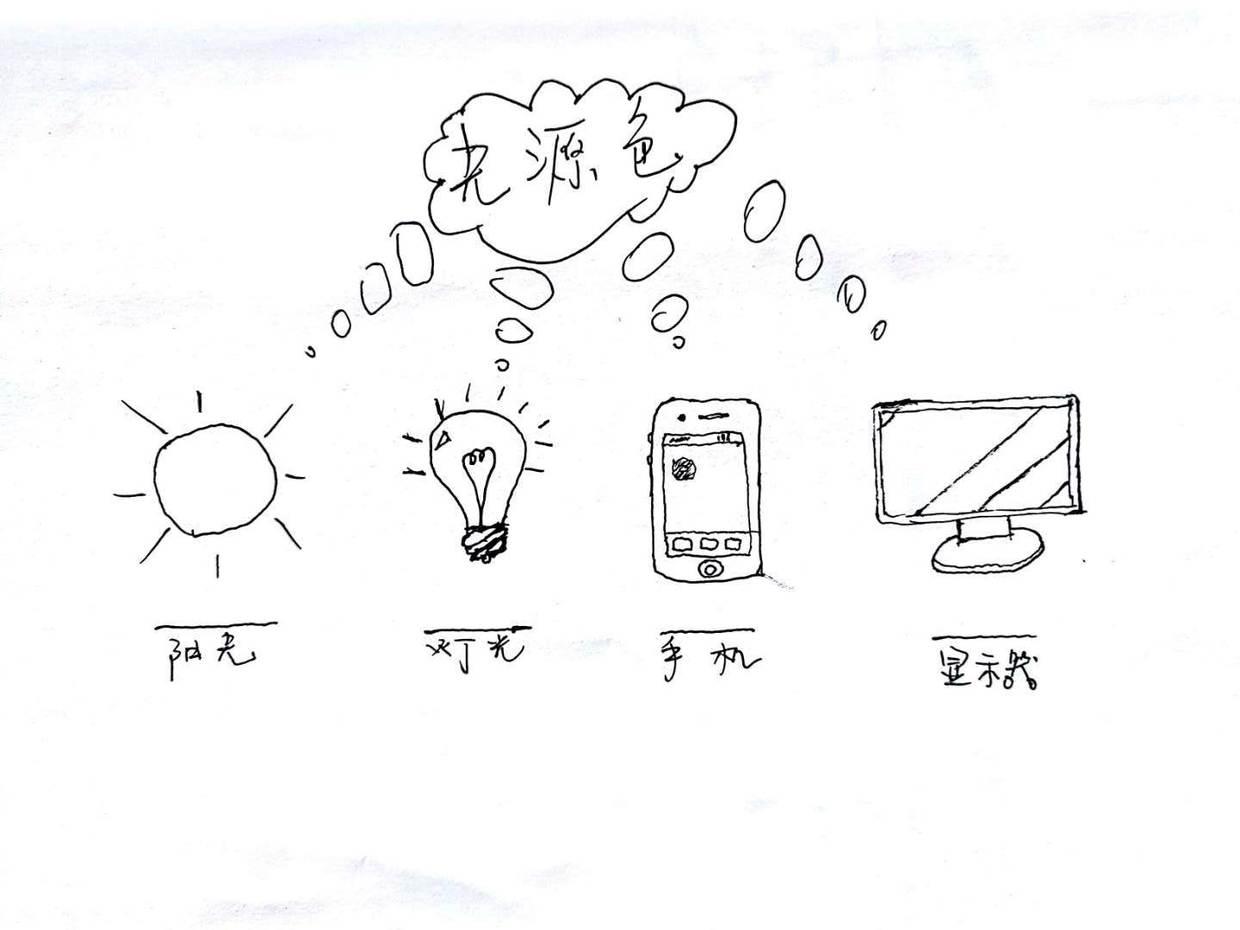 光源色
阳光
灯光
手机
显示器